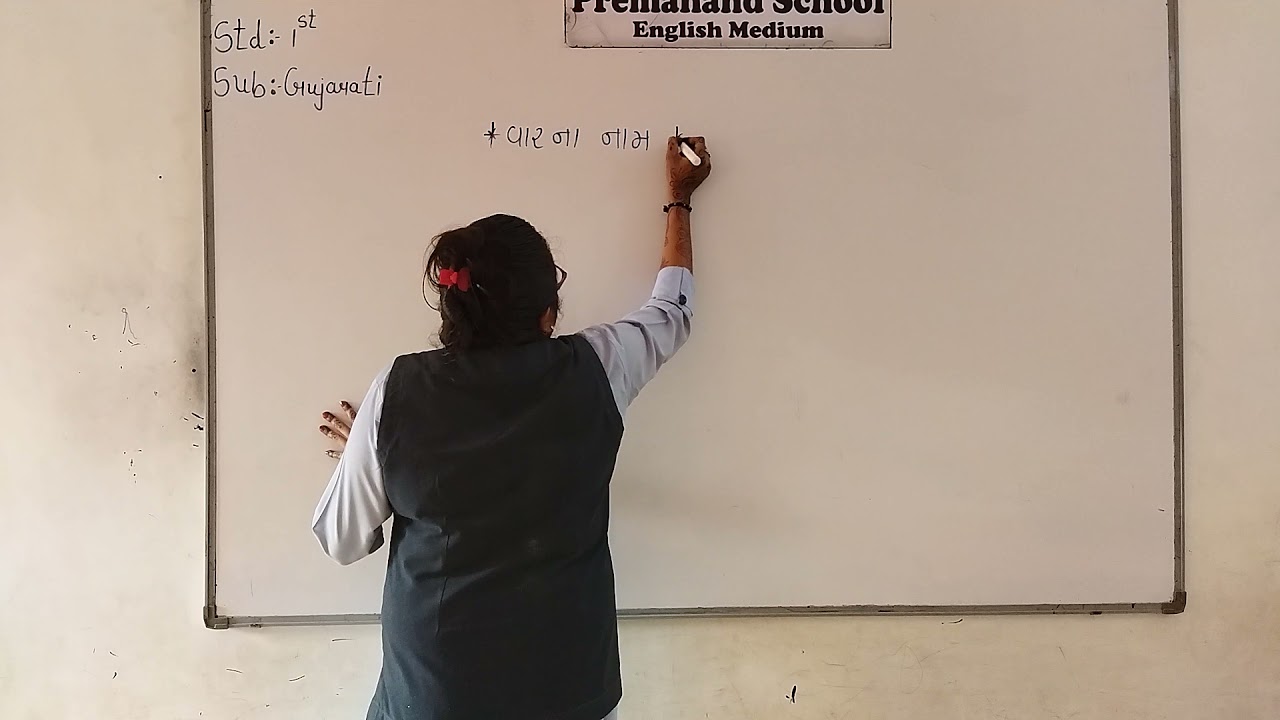 Premanand School
English Medium
Std:- 1st
Sub:- Gujarati
* વારના નામ *